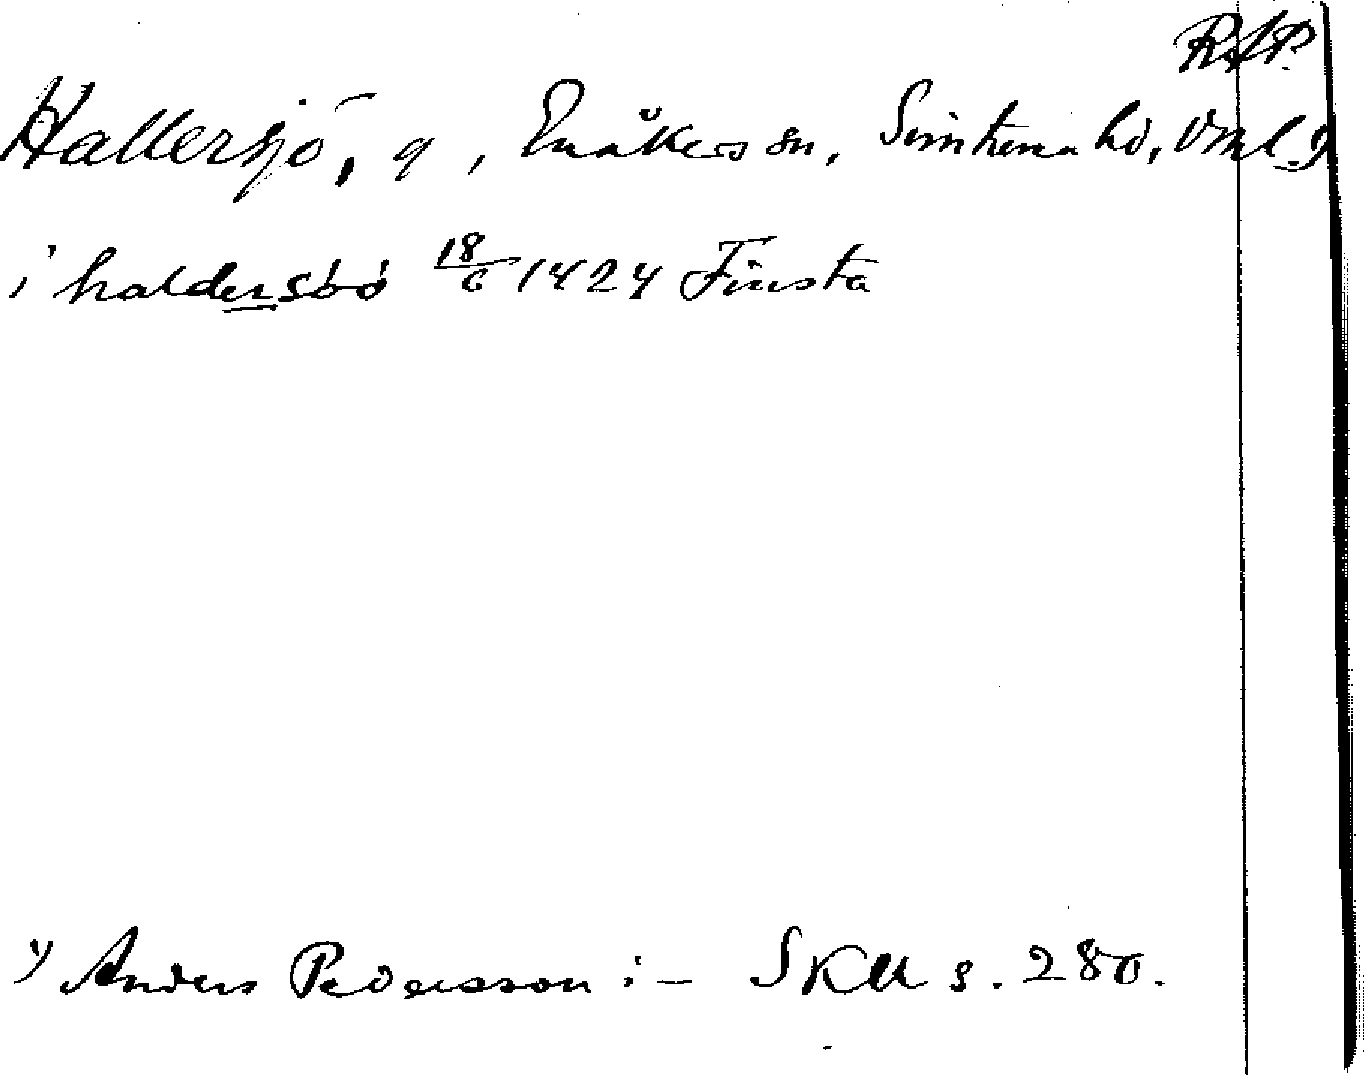 RAP.
Hallersjö, g, Enåkers sn, Simtuna hd, Vml. 1)
i haldersbö 18/6 1424 Finsta
1) Anders Pedersson i – SKU s. 280.